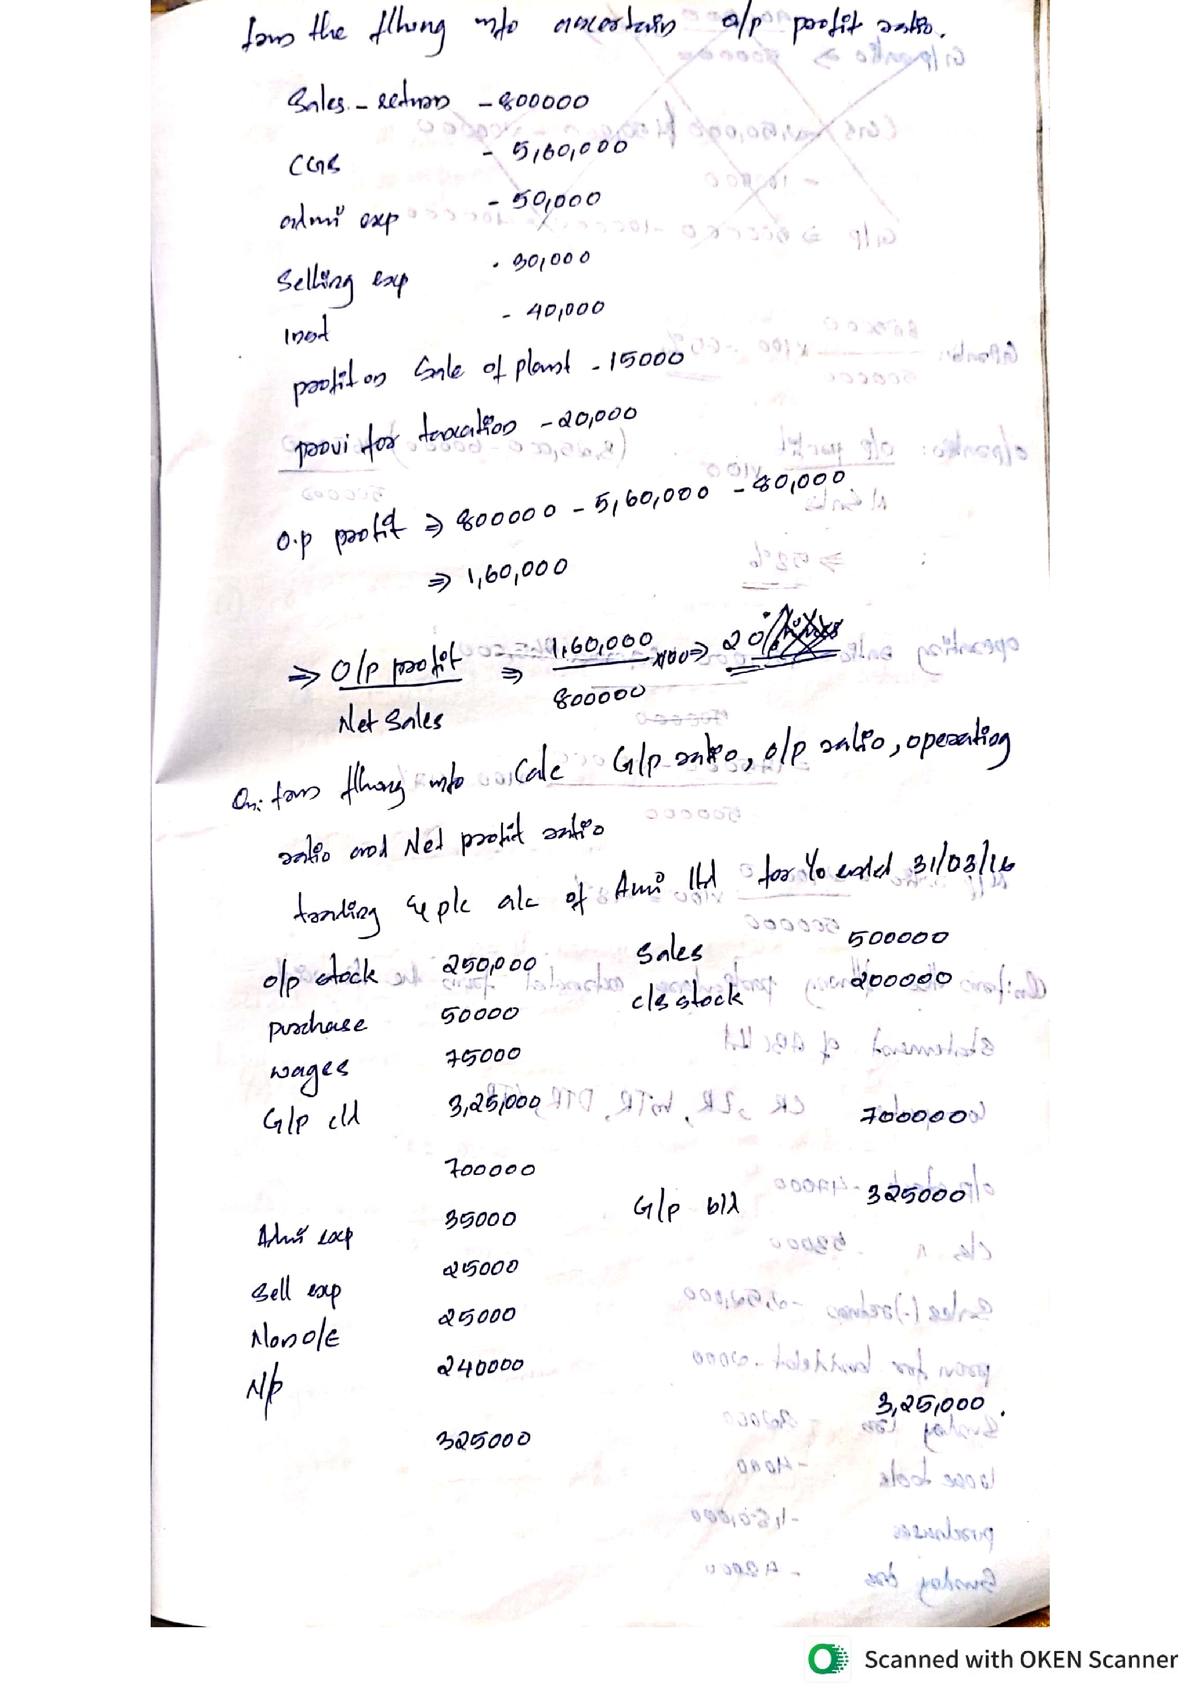 from the fllwng info ascertain o/p profit ratio.
Sales - returns - 800000
CGS - 5,60,000
admi exp - 50,000
Selling exp - 30,000
Inst - 40,000
profit on Sale of plant - 15000
provi for taxation - 20,000
O.p profit ⇒ 800000 - 5,60,000 - 80,000
⇒ 1,60,000
⇒ O/p profit ⇒ 1,60,000 x100 ⇒ 20%
Net Sales 800000
Qn: from fllwng info Calc G/p ratio, o/p ratio, operating
ratio and Net profit ratio
trading & plc alc of Ami ltd for Yo ended 31/03/16
o/p stock 250,000 Sales 500000
purchase 50000 cls stock 200000
wages 75000
G/p cld 3,25,000 700000
700000
G/p bld 325000
Admi exp 35000
Sell exp 25000
Non o/E 25000
N/p 240000
325000 3,25,000.
Scanned with OKEN Scanner